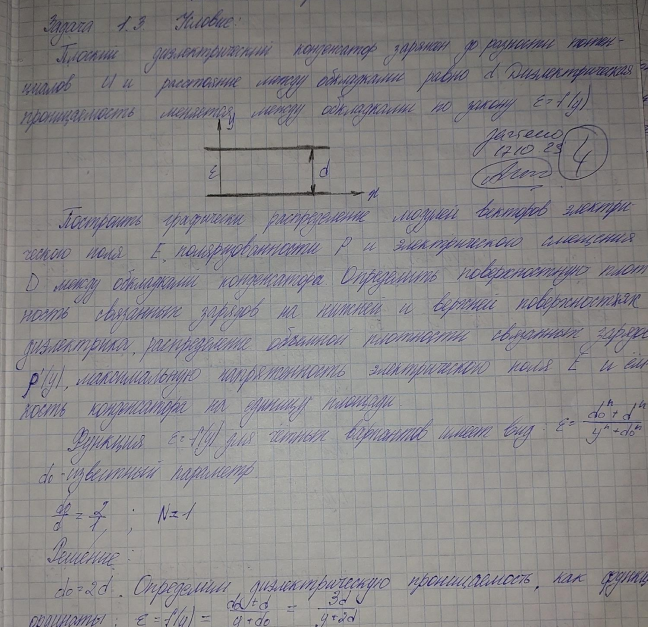 Задача 1.3. Условие:
Плоский диэлектрический конденсатор заряжен до разности потен-
циалов U и расстояние между обкладками равно d. Диэлектрическая
проницаемость меняется между обкладками по закону ε=f(y)
y
ε
d
x
Зачтено
17.10.23
4
Построить графически распределение модулей векторов электри-
ческого поля E, поляризованности P и электрического смещения
D между обкладками конденсатора. Определить поверхностную плот
ность связанных зарядов на нижней и верхней поверхностях
диэлектрика, распределение объемной плотности связанных зарядов
ρ'(y), максимальную напряженность электрического поля E и ём
кость конденсатора на единицу площади
Функция ε=f(y) для чётных вариантов имеет вид: ε = (d₀ⁿ+dⁿ)/(yⁿ+d₀ⁿ)
d₀-известный параметр
d₀/d = 2/1 ; N=1
Решение:
d₀=2d. Определим диэлектрическую проницаемость, как функц
ординаты: ε=f(y) = (d₀+d)/(y+d₀) = 3d/(y+2d)